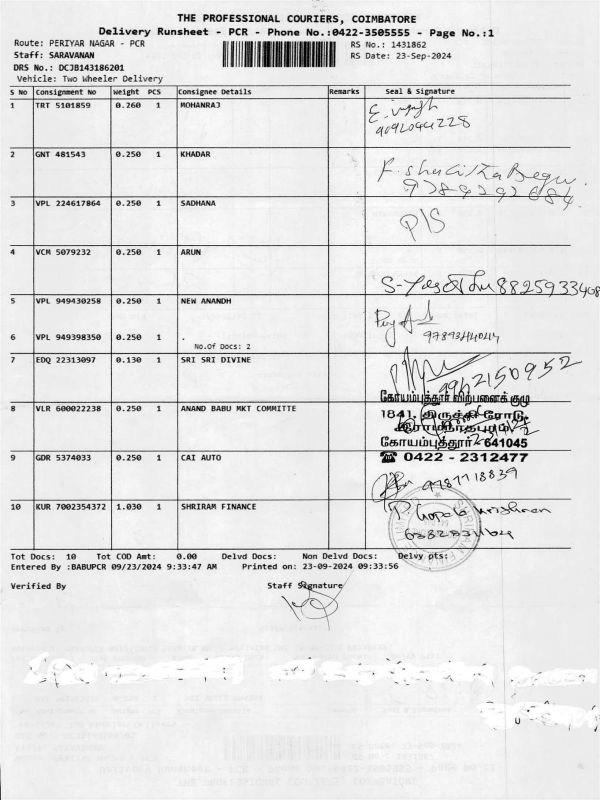 THE PROFESSIONAL COURIERS, COIMBATORE
Delivery Runsheet - PCR - Phone No.:0422-3505555 - Page No.:1
Route: PERIYAR NAGAR - PCR RS No.: 1431862
Staff: SARAVANAN RS Date: 23-Sep-2024
DRS No.: DCJB143186201
Vehicle: Two Wheeler Delivery
S No Consignment No Weight PCS Consignee Details Remarks Seal & Signature
1 TRT 5101859 0.260 1 MOHANRAJ
9092044228
2 GNT 481543 0.250 1 KHADAR
9789292684
3 VPL 224617864 0.250 1 SADHANA
P/S
4 VCM 5079232 0.250 1 ARUN
8825933408
5 VPL 949430258 0.250 1 NEW ANANDH
6 VPL 949398350 0.250 1 .
No.Of Docs: 2
7 EDQ 22313097 0.130 1 SRI SRI DIVINE
9962150952
கோயம்புத்தூர் விற்பனைக் குழு
8 VLR 600022238 0.250 1 ANAND BABU MKT COMMITTE
1841, திருச்சி ரோடு,
இராமநாதபுரம்
கோயம்புத்தூர் - 641045
9 GDR 5374033 0.250 1 CAI AUTO
☎ 0422 - 2312477
9787718839
10 KUR 7002354372 1.030 1 SHRIRAM FINANCE
P. Gopala Krishnan
Tot Docs: 10 Tot COD Amt: 0.00 Delvd Docs: Non Delvd Docs: Delvy pts:
Entered By :BABUPCR 09/23/2024 9:33:47 AM Printed on: 23-09-2024 09:33:56
Verified By Staff Signature